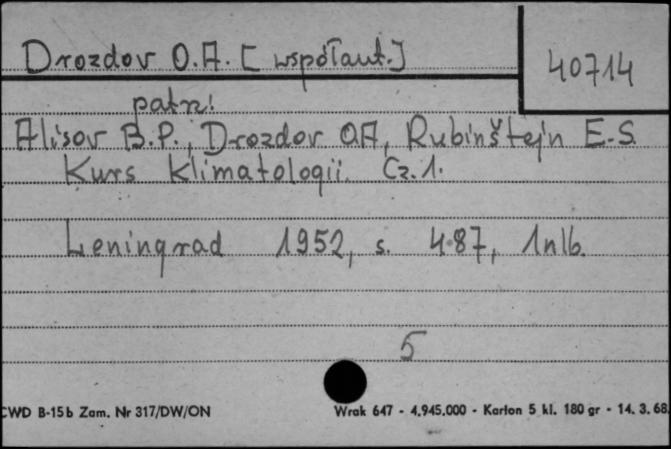 Drozdov O.A. [współaut.]
40714
patrz!
Alisov B.P., Drozdov OA, Rubinštejn E.S.
Kurs klimatologii. Cz.1.
Leningrad 1952, s. 487, 1nlb.
5
CWD B-15b Zam. Nr 317/DW/ON
Wrak 647 - 4.945.000 - Karton 5 kl. 180 gr - 14. 3. 68.